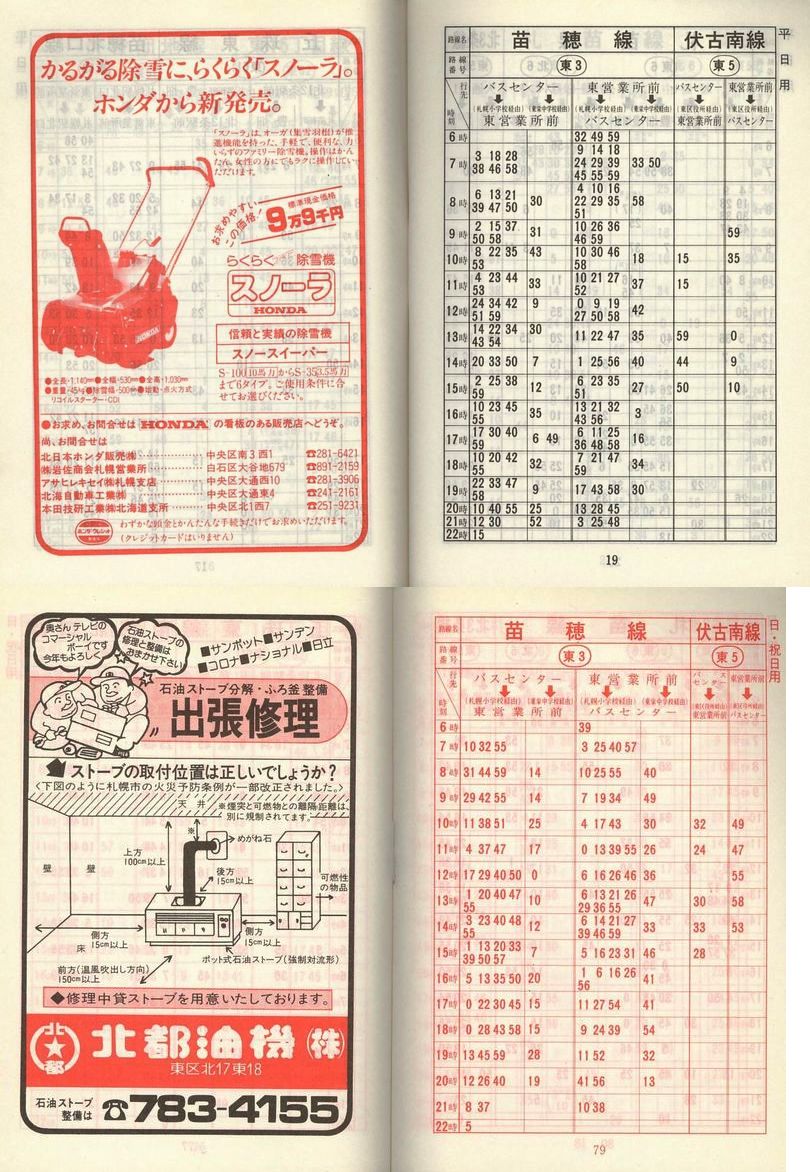 かるがる除雪に、らくらく「スノーラ」。
ホンダから新発売。
「スノーラ」は、オーガ(集雪羽根)が推
進機能を持った、手軽で、便利な、力
いらずのファミリー除雪機。操作はかん
たん、女性の方にもラクに操作してい
ただけます。
お求めやすい
この価格!
標準現金価格
9万9千円
らくらく 除雪機
スノーラ
HONDA
信頼と実績の除雪機
スノースイーパー
S-100(10馬力)からS-35(3.5馬力)
まで6タイプ。ご使用条件に合
せてお選びください。
●全長・1,140mm●全幅・530mm●全高・1,030mm
●重量・45kg●除雪幅・500mm●始動・点火方式
リコイルスターター・CDI
●お求め、お問合せは HONDA の看板のある販売店へどうぞ。
尚、お問合せは
北日本ホンダ販売㈱………中央区南3西1 ☎281-6421
㈱岩佐商会札幌営業所………白石区大谷地679 ☎891-2159
アサヒレキセイ㈱札幌支店………中央区大通西10 ☎281-3906
北海自動車工業㈱………中央区大通東4 ☎241-2161
本田技研工業㈱北海道支所………中央区北1西7 ☎251-9231
わずかな頭金とかんたんな手続きだけでお求めいただけます。
(クレジットカードはいりません)
平日用
路線名 苗穂線 伏古南線
路線番号 東3 東5
行先 時刻
バスセンター (札幌小学校経由) (東栄中学校経由) 東営業所前
東営業所前 (札幌小学校経由) (東栄中学校経由) バスセンター
バスセンター (東区役所経由) 東営業所前
東営業所前 (東区役所経由) バスセンター
6時 32 49 59
7時 3 18 28 38 46 58 9 14 18 24 29 39 45 55 59 33 50
8時 6 13 21 39 47 50 30 4 10 16 22 29 35 51 58
9時 2 15 37 50 58 31 10 26 36 46 59 59
10時 8 22 35 53 43 10 30 46 58 18 15 35
11時 4 23 44 53 33 10 21 27 52 37 15
12時 24 34 42 51 59 9 0 9 19 27 50 58 42
13時 14 22 34 43 54 30 11 22 47 35 59 0
14時 20 33 50 7 1 25 56 40 44 9
15時 2 25 38 59 12 6 23 35 51 27 50 10
16時 10 23 45 55 35 13 21 32 43 56 3
17時 17 30 40 59 6 49 6 11 25 36 48 58 16
18時 10 20 42 55 32 7 21 47 59 34
19時 22 33 47 58 9 17 43 58 30
20時 10 40 55 25 13 28 45
21時 12 30 52 3 25 48
22時 15
19
奥さん テレビの
コマーシャル
ボーイです
今年もよろしく
石油ストーブの
修理と整備は
おまかせ下さい
■サンポット■サンデン
■コロナ■ナショナル■日立
石油ストーブ分解・ふろ釜整備
出張修理
ストーブの取付位置は正しいでしょうか?
〈下図のように札幌市の火災予防条例が一部改正されました。〉
天井
※煙突と可燃物との離隔距離は、
別に規制されてます。
※
めがね石
上方
100cm以上
後方
15cm以上
壁
壁
可燃性
の物品
側方
15cm以上
側方
15cm以上
床
前方(温風吹出し方向)
150cm以上
ポット式石油ストーブ(強制対流形)
◆修理中貸ストーブを用意いたしております。
北都
北都油機㈱
東区北17東18
石油ストーブ
整備は
☎783-4155
日・祝日用
路線名 苗穂線 伏古南線
路線番号 東3 東5
行先 時刻
バスセンター (札幌小学校経由) (東栄中学校経由) 東営業所前
東営業所前 (札幌小学校経由) (東栄中学校経由) バスセンター
バスセンター (東区役所経由) 東営業所前
東営業所前 (東区役所経由) バスセンター
6時 39
7時 10 32 55 3 25 40 57
8時 31 44 59 14 10 25 55 40
9時 29 42 55 14 7 19 34 49
10時 11 38 51 25 4 17 43 30 32 49
11時 4 37 47 17 0 13 39 55 26 24 47
12時 17 29 40 50 0 6 16 26 46 36 55
13時 1 20 40 47 55 10 6 13 21 26 29 36 55 47 30 58
14時 3 23 40 48 55 12 6 14 21 27 39 46 59 33 33 53
15時 1 13 20 33 39 50 57 7 5 16 23 31 46 28
16時 5 13 35 50 20 1 6 16 26 56 41
17時 0 22 30 45 15 11 27 54 41
18時 0 28 43 58 15 9 24 39 54
19時 13 45 59 28 11 52 32
20時 12 26 40 19 41 56 13
21時 8 37 10 38
22時 5
79